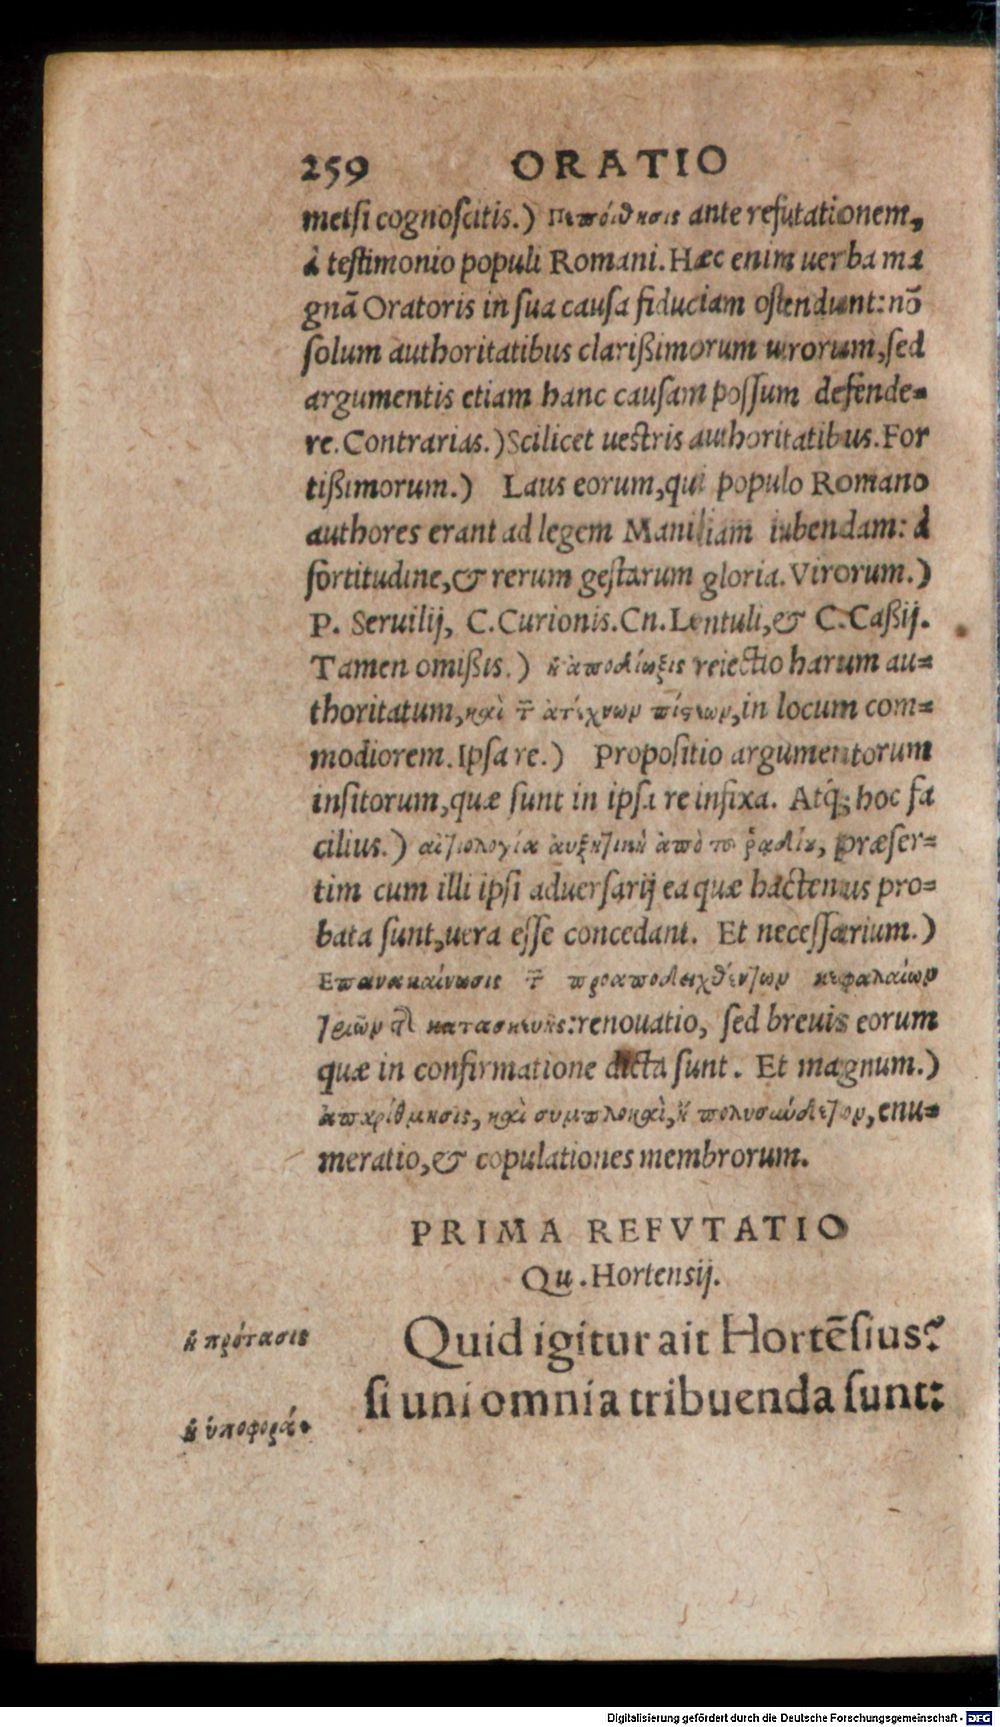 259 ORATIO
metsi cognoscitis.) Πεπόιθησις ante refutationem,
à testimonio populi Romani. Hæc enim uerba ma
gnã Oratoris in sua causa fiduciam ostendunt: nõ
solum authoritatibus clarißimorum uirorum, sed
argumentis etiam hanc causam possum defende=
re. Contrarias.) Scilicet uestris authoritatibus. For
tißimorum.) Laus eorum, qui populo Romano
authores erant ad legem Maniliam iubendam: à
fortitudine, & rerum gestarum gloria. Virorum.)
P. Seruilij, C. Curionis. Cn. Lentuli, & C. Caßij.
Tamen omißis.) ἡ ἀποδίωξις reiectio harum au=
thoritatum, καὶ τ̃ ἀτέχνων πίστεων, in locum com=
modiorem. Ipsa re.) Propositio argumentorum
insitorum, quæ sunt in ipsa re infixa. Atq́; hoc fa
cilius.) αἰτιολογία ἀυξητικὴ ἀπὸ τοῦ ῥᾳδίου, præser=
tim cum illi ipsi aduersarij ea quæ hactenus pro=
bata sunt, uera esse concedant. Et necessarium.)
Επανακαίνωσις τ̃ προαποδειχθέντων κεφαλαίων
τριῶν τῆς κατασκευῆς: renouatio, sed breuis eorum
quæ in confirmatione dicta sunt. Et magnum.)
ἀπαρίθμησις, καὶ συμπλοκαὶ, ἢ πολυσύνδετον, enu=
meratio, & copulationes membrorum.
PRIMA REFVTATIO
Qu. Hortensij.
ἡ πρότασις
Quid igitur ait Hortẽsius?
si uni omnia tribuenda sunt:
ἡ ὑποφορά.
Digitalisierung gefördert durch die Deutsche Forschungsgemeinschaft - DFG